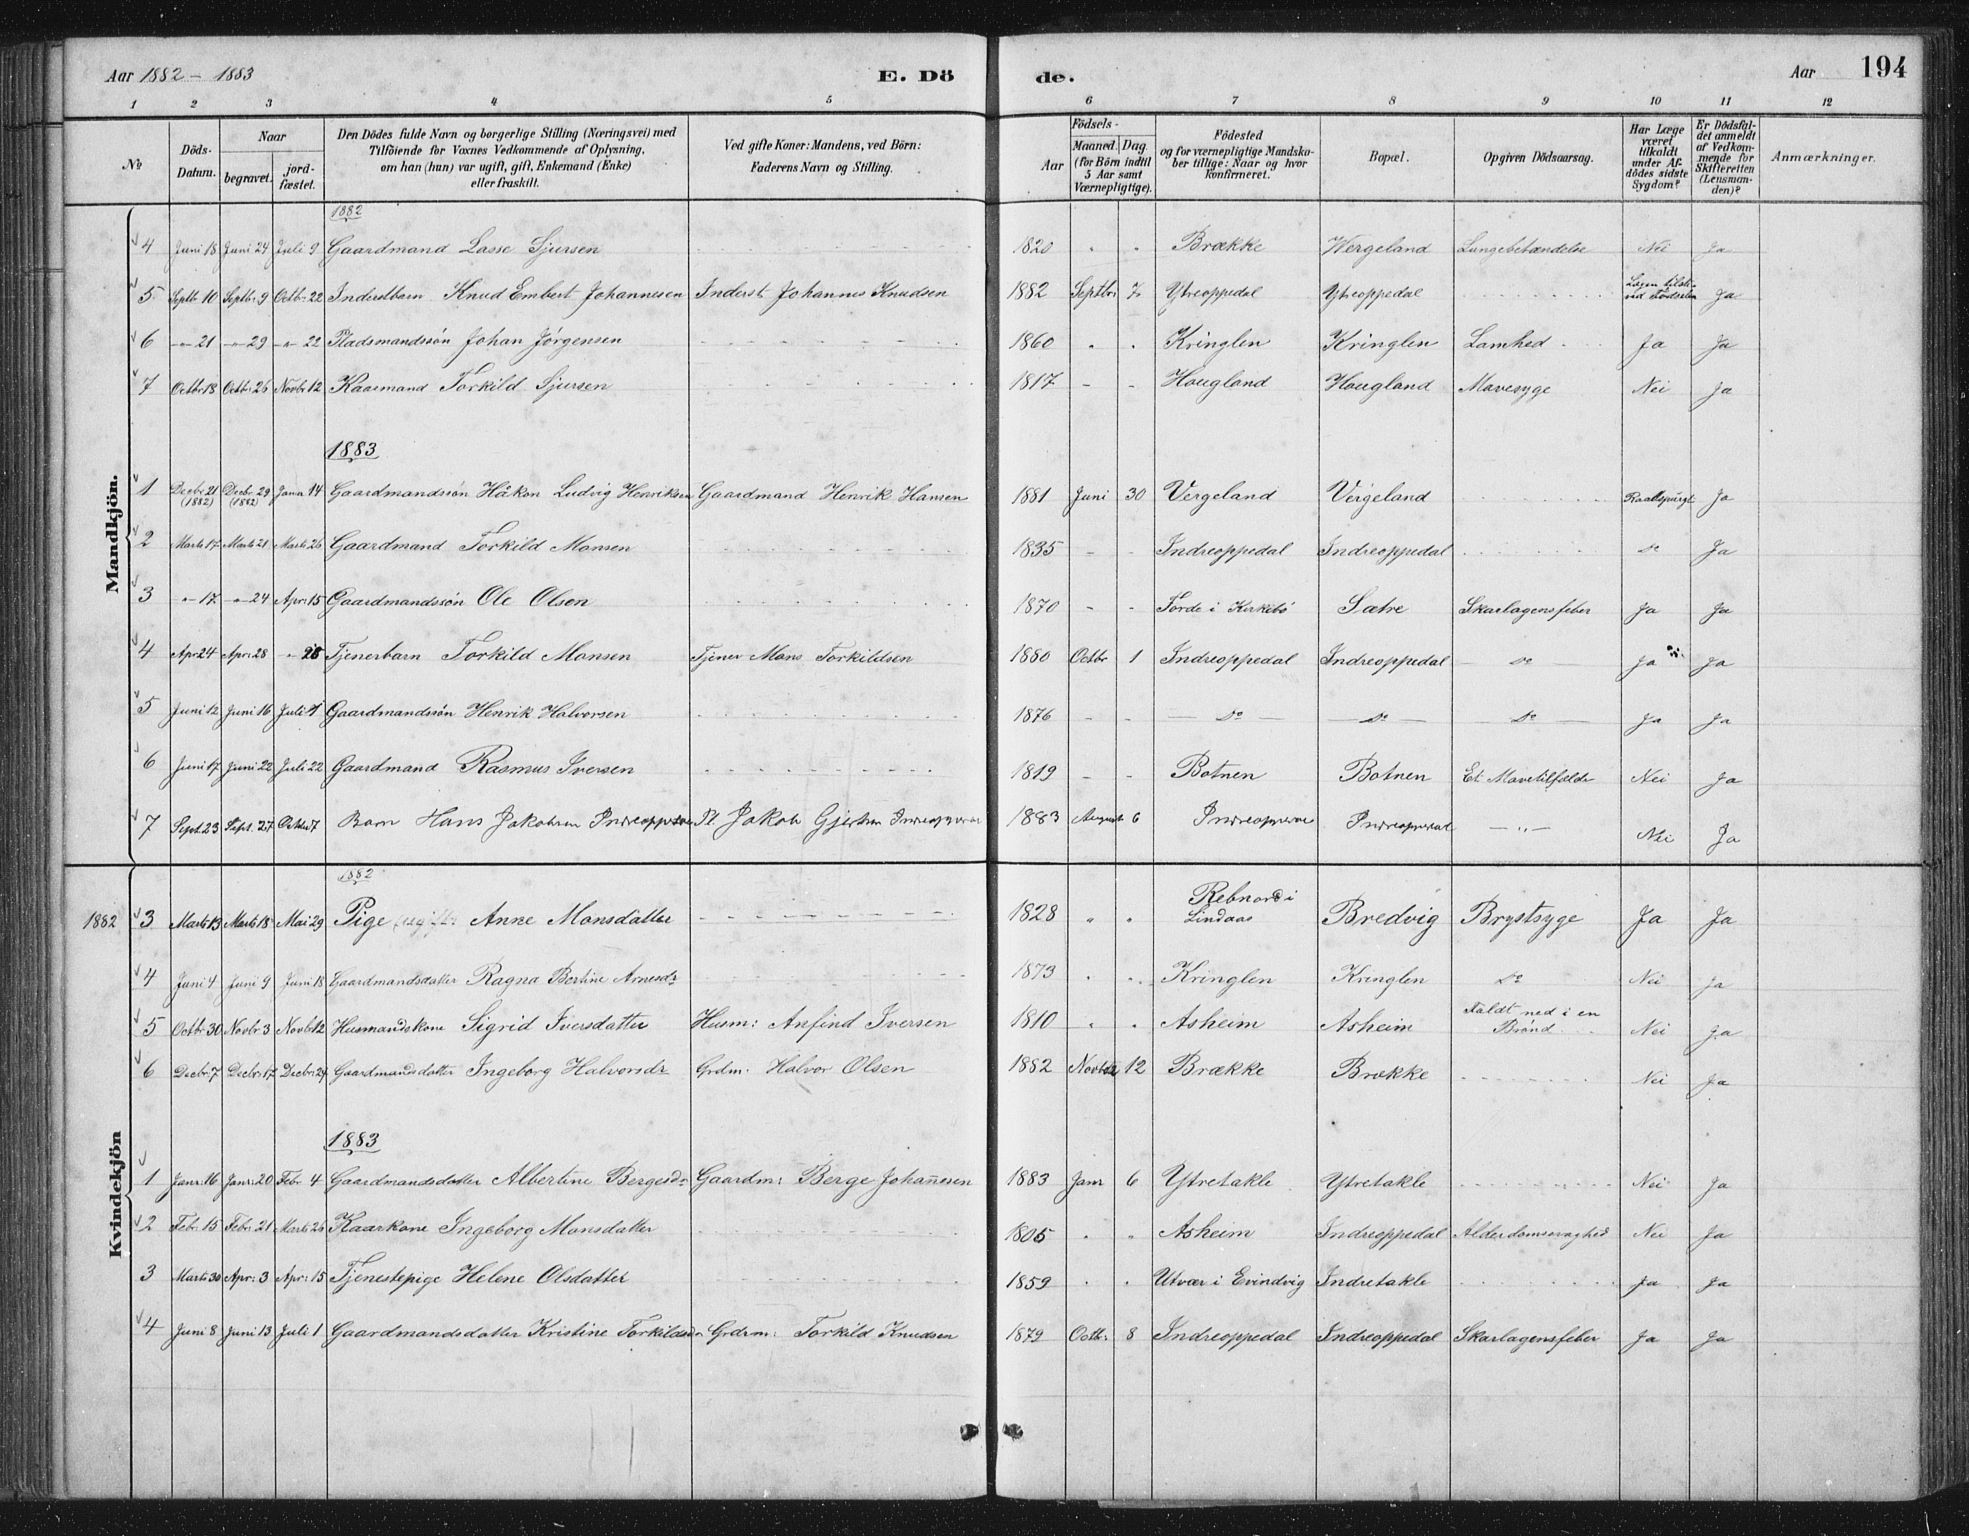 Aar 1882 - 1883 E. Dö de. Aar 194
1 2 3 4 5 6 7 8 9 10 11 12
No Döds-Datum. Naar begravet. jord-fæstet. Den Dödes fulde Navn og borgerlige Stilling (Næringsvei) med Tilföiende for Voxnes Vedkommende af Oplysning, om han (hun) var ugift, gift, Enkemand (Enke) eller fraskilt. Ved gifte Koner: Mandens, ved Börn: Faderens Navn og Stilling. Födsels- Aar Maaned. Dag (for Börn indtil 5 Aar samt Værnepligtige). Födested og for værnepligtige Mandskaber tillige: Naar og hvor Konfirmeret. Bopæl. Opgiven Dödsaarsag. Har Læge været tilkaldt under Afdödes sidste Sygdom? Er Dödsfaldet anmeldt af Vedkommende for Skifteretten (Lensmanden)? Anmærkninger.
Mandkjön.
1882
4 Juni 18 Juni 24 Juli 9 Gaardmand Lasse Sjursen 1820 " " Brække Wergeland Lungebetændelse Nei Ja
5 Septb. 10 Septbr. 9 Octbr. 22 Inderstbarn Knud Embert Johannesen Inderst Johannes Knudsen 1882 Septbr 7 Ytreoppedal Ytreoppedal ved Fødselen Ja
6 -"- 21 -"- 29 -"- 22 Pladsmandssön Johan Jørgensen 1860 " " Kringlen Kringlen Lamhed Ja Ja
7 Octbr. 18 Octbr. 26 Novbr. 12 Kaarmand Torkild Sjursen 1817 - - Hougland Hougland Mavesyge Nei Ja
1883
1 Decbr. 21 (1882) Decbr. 29 (1882) Janr. 14 Gaardmandssön Håkon Ludvig Henriksen Gaardmand Henrik Hansen 1881 Juni 30 Vergeland Vergeland Raadspurgt Ja
2 Marts 17 Marts 21 Marts 26 Gaardmand Torkild Monsen 1835 - - Indreoppedal Indreoppedal do Ja
3 "- 17 "- 24 Apr. 15 Gaardmandssön Ole Olsen 1870 - - Førde i Kirkebö Sætre Skarlagensfeber Ja Ja
4 Apr 24 Apr. 28 - 28 Tjenerbarn Torkild Monsen Tjener Mons Torkildsen 1880 Octbr 1 Indreoppedal Indreoppedal do Ja Ja
5 Juni 12 Juni 16 Juli 1 Gaardmandssön Henrik Halvorsen 1876 - - do do do Ja Ja
6 Juni 17 Juni 22 Juli 22 Gaardmand Rasmus Iversen 1819 - - Botnen Botnen Et Mavetilfælde Nei Ja
7 Sept. 23 Sept. 27 Octbr 7 Barn Hans Jakobsen Indreoppedal Pl Jakob Gjertsen Indreoppedal 1883 August 6 Indreoppedal Indreoppedal -"- Nei Ja
Kvindekjön
1882
1882 3 Marts 13 Marts 18 Mai 29 Pige (ugift) Anne Monsdatter 1828 " " Rebnord i Lindaas Bredvig Brystsyge Ja Ja
4 Juni 4 Juni 9 Juni 18 Gaardmandsdatter Ragna Bertine Arnesdr 1873 " " Kringlen Kringlen do Nei Ja
5 Octbr. 30 Novbr. 3 Novbr. 12 Husmandskone Sigrid Iversdatter Husm: Anfind Iversen 1810 " " Asheim Asheim Faldt ned i en Brönd Nei Ja
6 Decbr. 7 Decbr. 17 Decbr. 24 Gaardmandsdatter Ingeborg Halvorsdr Grdm: Halvor Olsen 1882 Novbr 12 Brække Brække Nei Ja
1883
1 Janr. 16 Janr. 20 Febr 4 Gaardmandsdatter Albertine Bergesdr Gaardm: Berge Johannesen 1883 Janr 6 Ytretakle Ytretakle Nei Ja
2 Febr. 15 Febr. 21 Marts 26 Kaarkone Ingeborg Monsdatter 1805 " " Asheim Indreoppedal Alderdomssvaghed Nei Ja
3 Marts 30 Apr: 3 Apr: 15 Tjenestepige Helene Olsdatter 1859 " " Utvær i Evindvig Indretakle Ja Ja
4 Juni 8 Juni 13 Juli 1 Gaardmandsdatter Kristine Torkildsdr Grdm: Torkild Knudsen 1879 Octb: 8 Indreoppedal Indreoppedal Skarlagensfeber Ja Ja